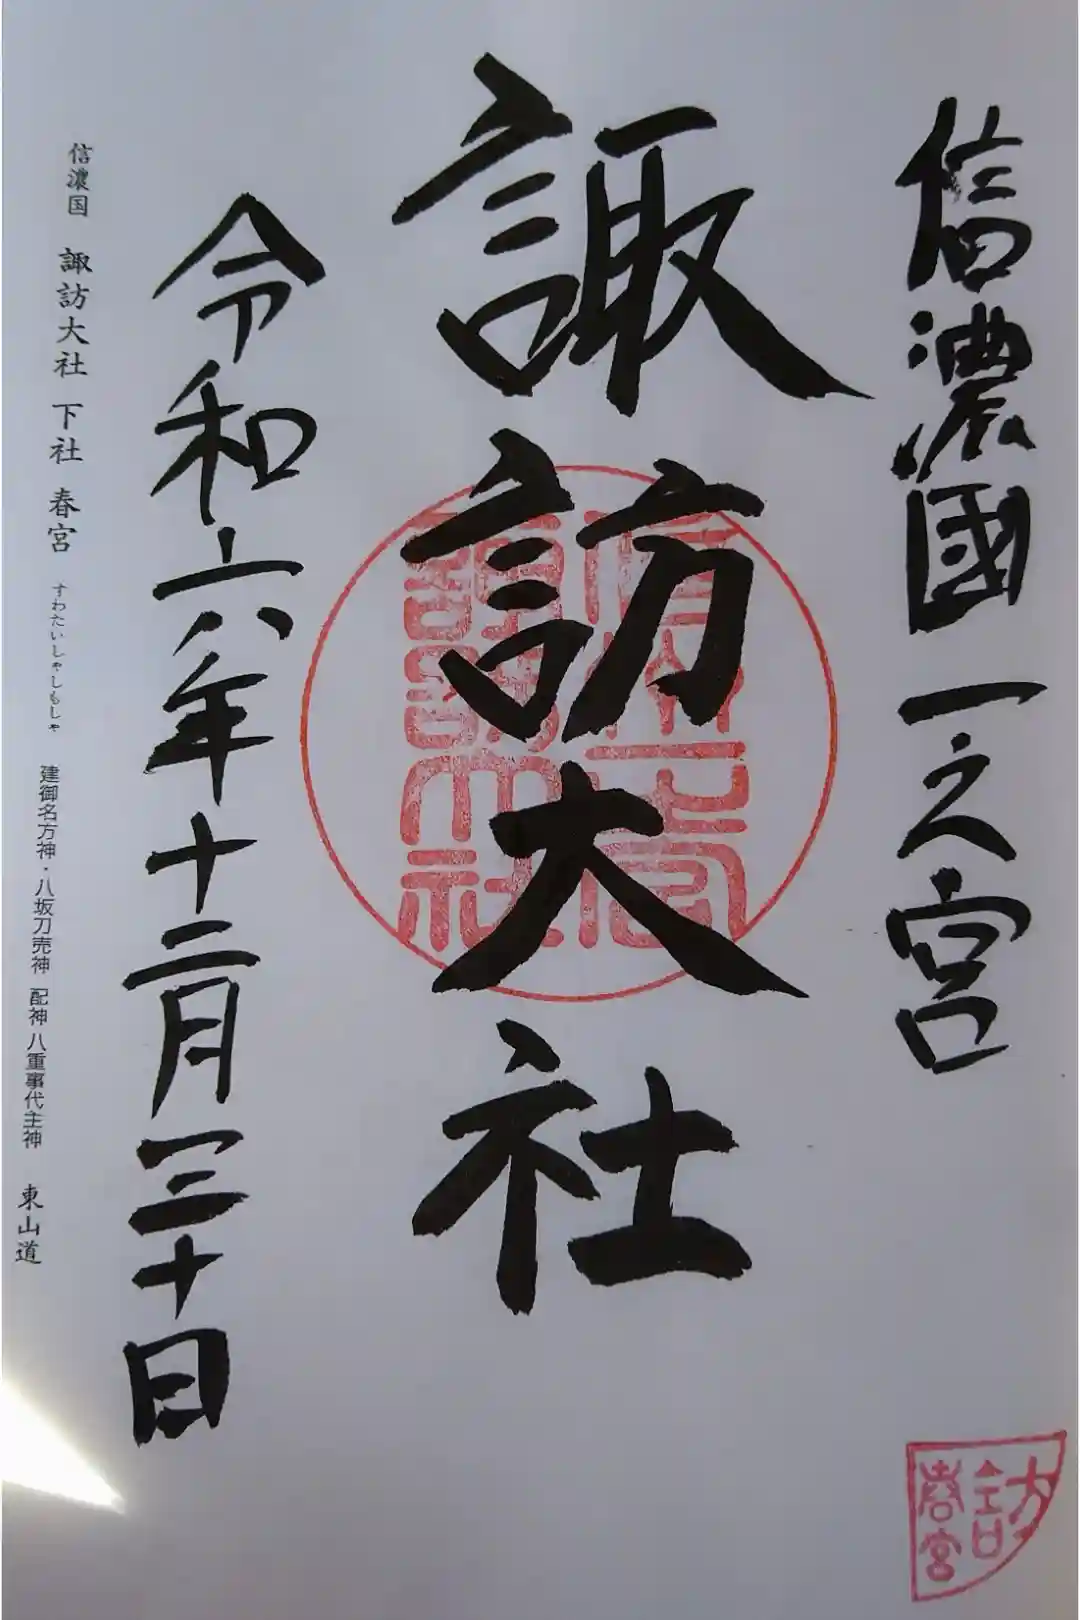 信濃國一之宮
諏訪大社
令和六年十二月三十日
信濃国 諏訪大社 下社 春宮 すわたいしゃしもしゃ 建御名方神・八坂刀売神 配神 八重事代主神 東山道
諏訪大社
訪
春宮